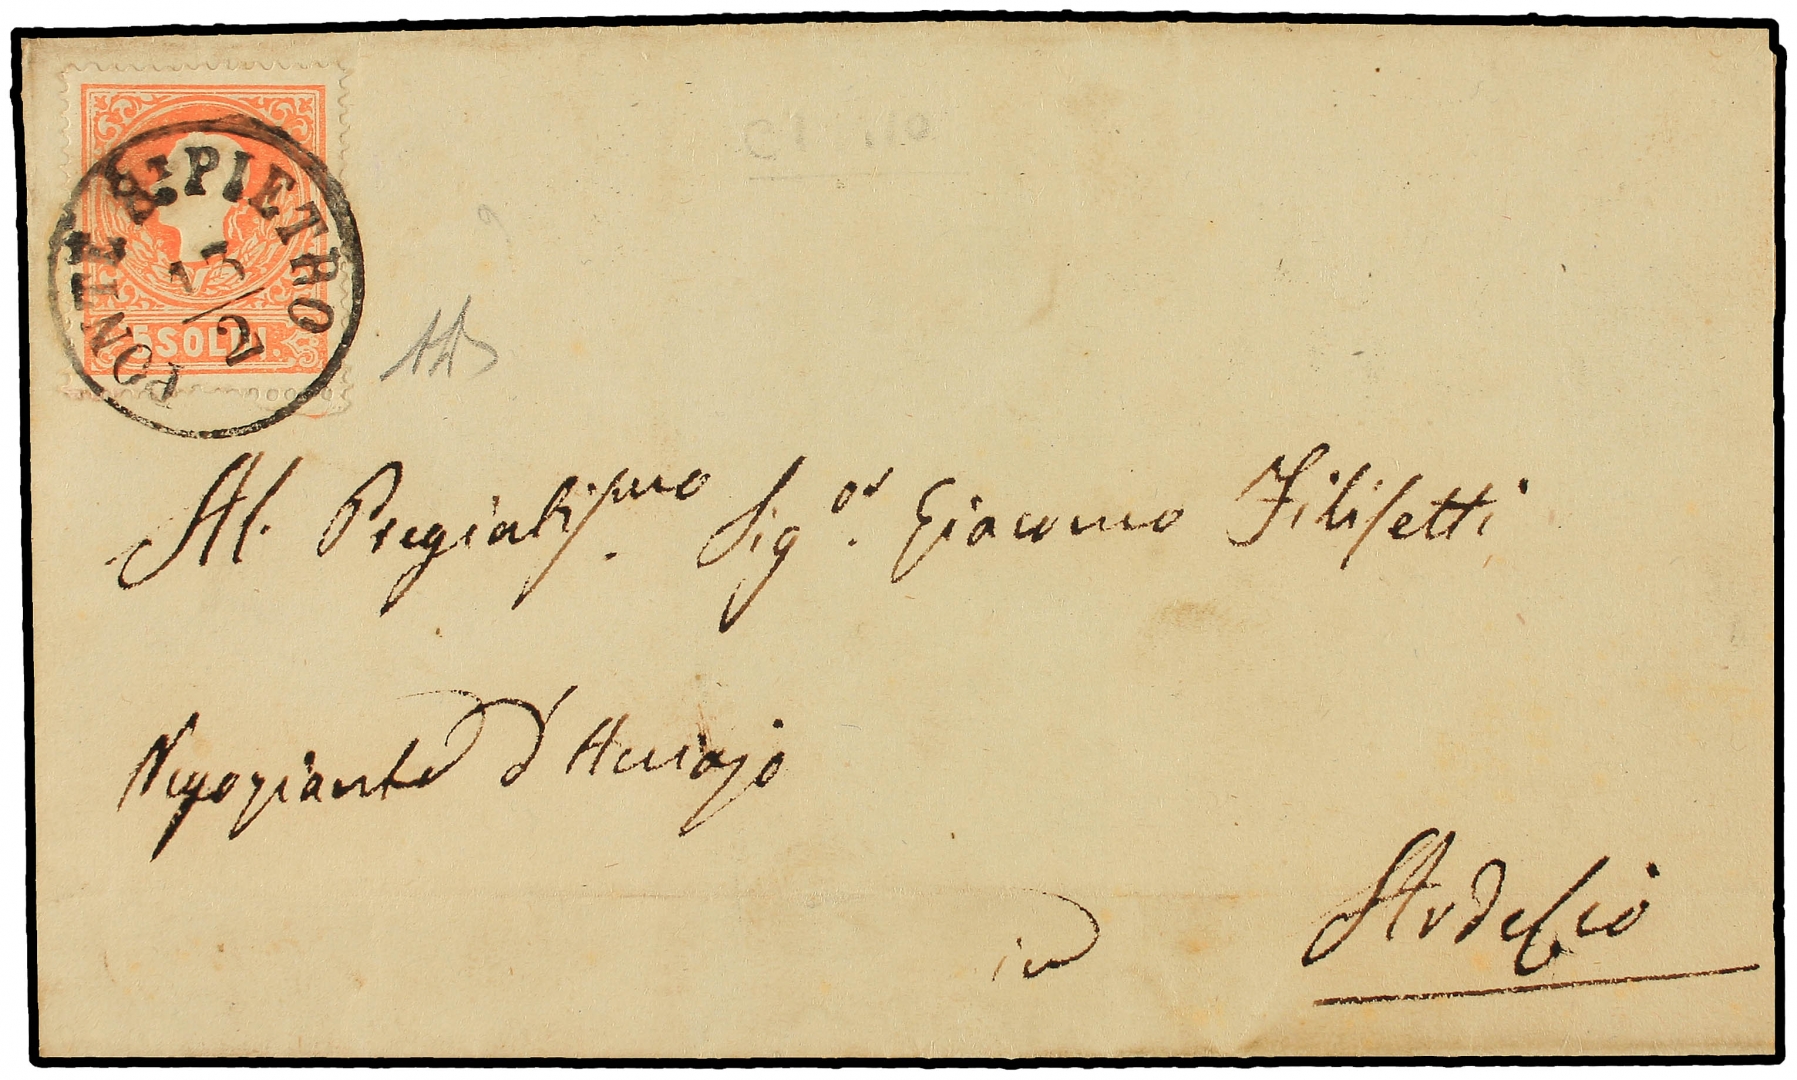 PONTE S. PIETRO
13/2
5 SOLDI.
Al. Pregiatissmo. Sigor. Giacomo Filisetti
Negoziante d'Acciajo
in Ardesio